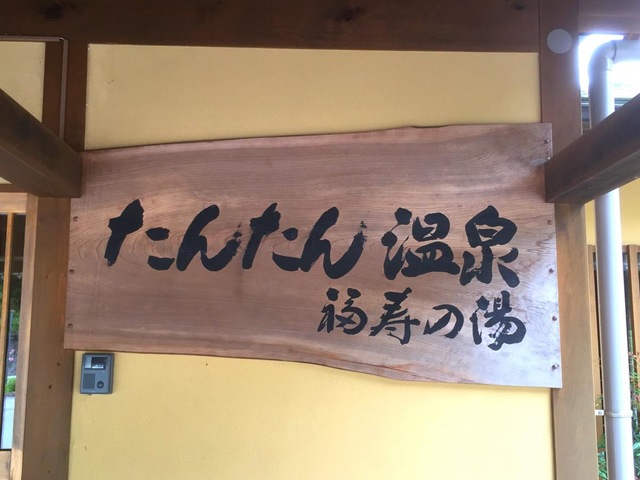 たんたん温泉
福寿の湯